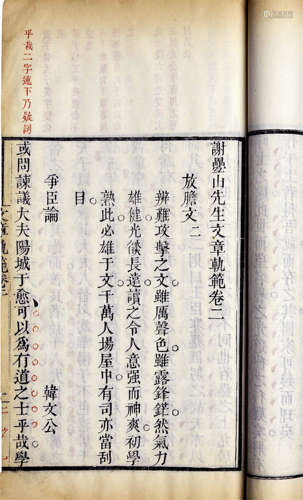 謝疊山先生文章軌範卷二
放膽文二
辨難攻擊之文雖厲聲色雖露鋒鋩然氣力
雄健光燄長遠讀之令人意强而神爽初學
熟此必雄于文千萬人場屋中有司亦當刮
目
爭臣論
韓文公
或問諫議大夫陽城于愈可以爲有道之士乎哉學
平哉二字連下乃疑詞